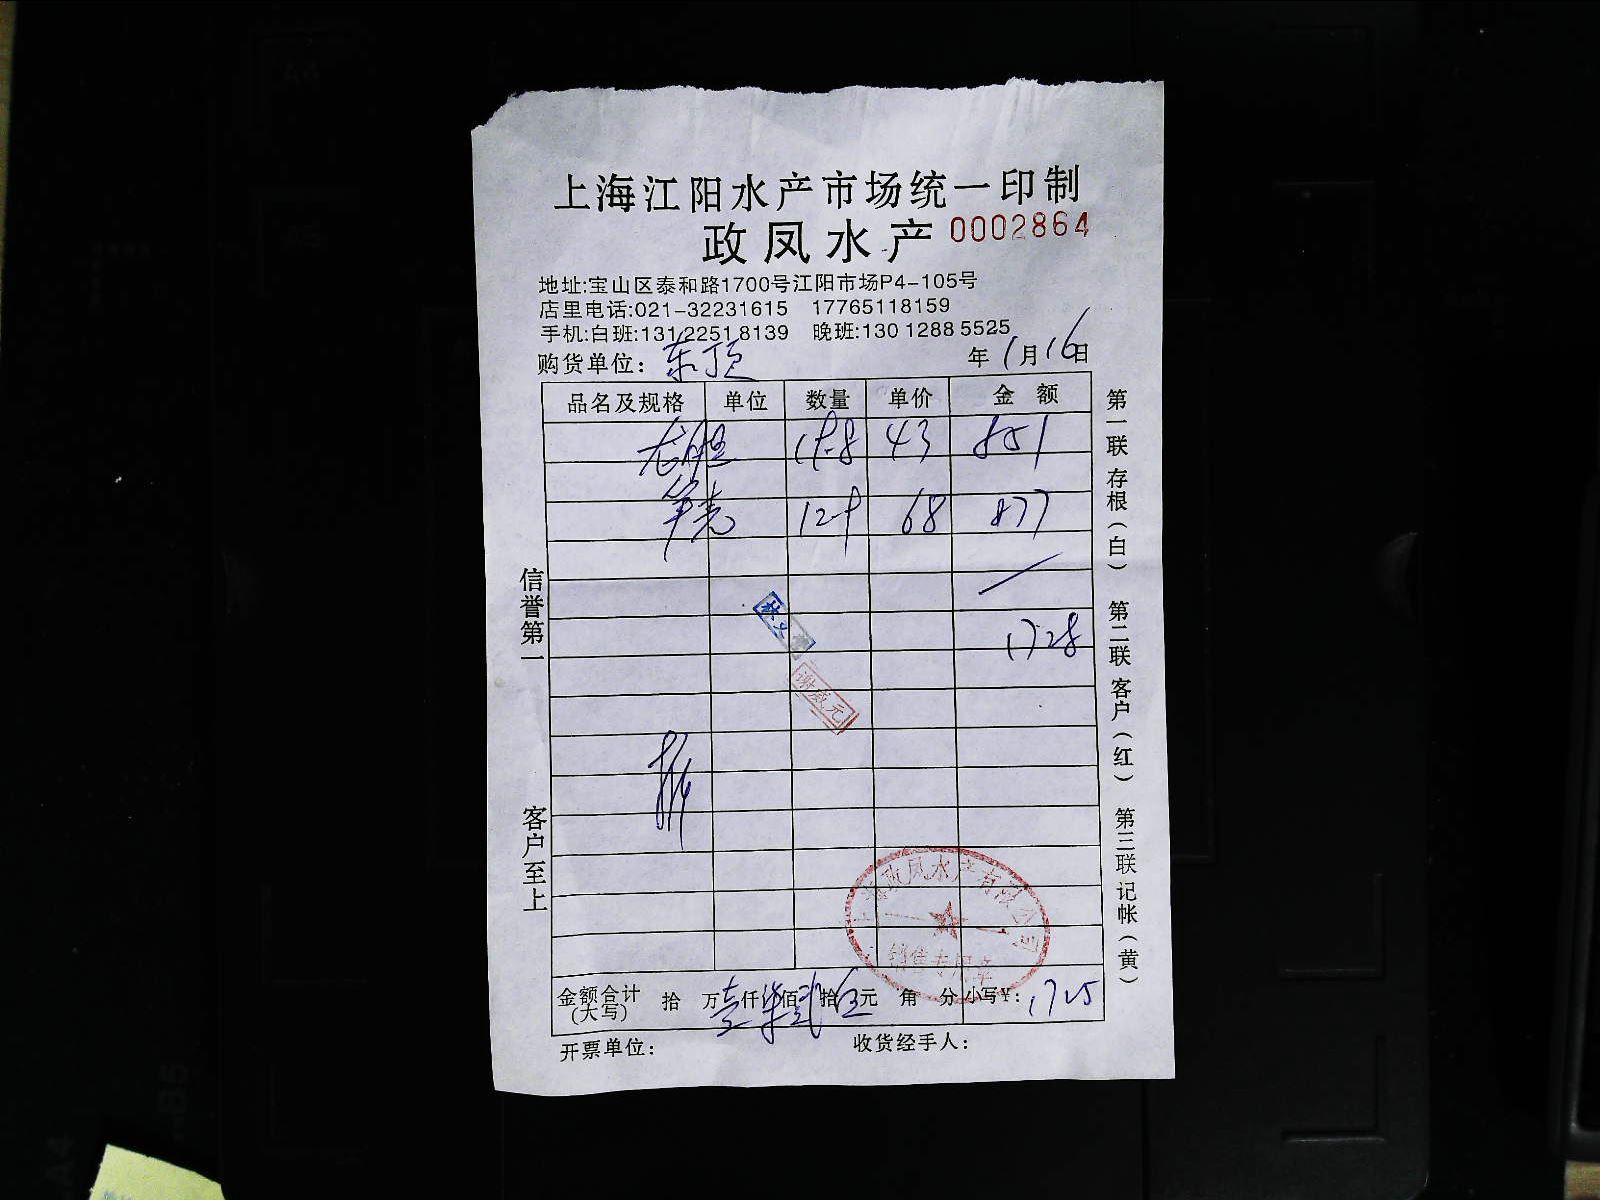 上海江阳水产市场统一印制
政凤水产 0002864
地址:宝山区泰和路1700号江阳市场P4-105号
店里电话:021-32231615 17765118159
手机:白班:13122518139 晚班:13012885525
购货单位: 东顶 年 1月16日
品名及规格 单位 数量 单价 金额
龙胆 19.8 43 851
笋壳 12.9 68 877
1728
信誉第一
客户至上
谢威元
上海政凤水产有限公司
销售专用章
金额合计(大写) 拾 万壹仟柒佰贰拾伍元 角 分 小写¥: 1725
开票单位: 收货经手人:
第一联存根(白) 第二联客户(红) 第三联记帐(黄)